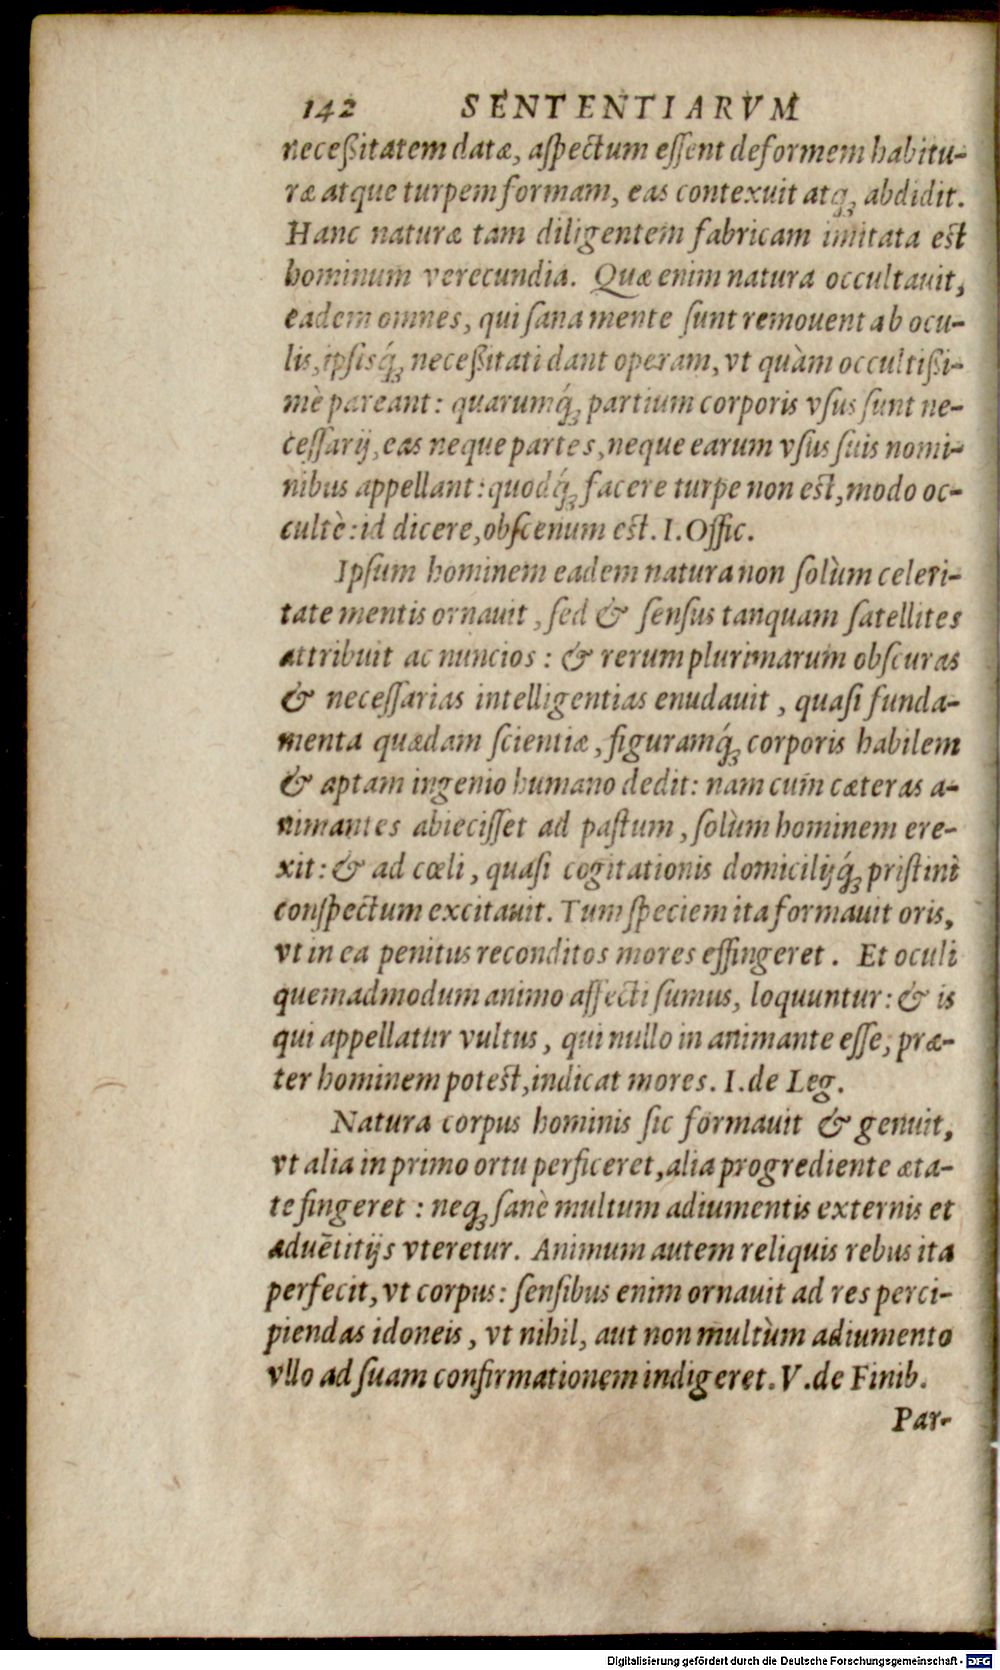 142 SENTENTIARVM
neceßitatem datæ, aſpectum eſſent deformem habitu-
ræ atque turpem formam, eas contexuit atq; abdidit.
Hanc naturæ tam diligentem fabricam imitata eſt
hominum verecundia. Quæ enim natura occultauit,
eadem omnes, qui ſana mente ſunt remouent ab ocu-
lis, ipſisq́; neceßitati dant operam, vt quàm occultißi-
mè pareant: quarumq́; partium corporis vſus ſunt ne-
ceſſarij, eas neque partes, neque earum vſus ſuis nomi-
nibus appellant: quodq́; facere turpe non eſt, modo oc-
cultè: id dicere, obſcenum eſt. I. Offic.
Ipſum hominem eadem natura non ſolùm celeri-
tate mentis ornauit, ſed & ſenſus tanquam ſatellites
attribuit ac nuncios: & rerum plurimarum obſcuras
& neceſſarias intelligentias enudauit, quaſi funda-
menta quædam ſcientiæ, figuramq́; corporis habilem
& aptam ingenio humano dedit: nam cum cæteras a-
nimantes abieciſſet ad paſtum, ſolùm hominem ere-
xit: & ad cœli, quaſi cogitationis domicilijq́; priſtini
conſpectum excitauit. Tum ſpeciem ita formauit oris,
vt in ea penitus reconditos mores effingeret. Et oculi
quemadmodum animo affecti ſumus, loquuntur: & is
qui appellatur vultus, qui nullo in animante eſſe, præ-
ter hominem poteſt, indicat mores. I. de Leg.
Natura corpus hominis ſic formauit & genuit,
vt alia in primo ortu perficeret, alia progrediente æta-
te fingeret: neq; ſanè multum adiumentis externis et
aduētitijs vteretur. Animum autem reliquis rebus ita
perfecit, vt corpus: ſenſibus enim ornauit ad res perci-
piendas idoneis, vt nihil, aut non multùm adiumento
vllo ad ſuam confirmationem indigeret. V. de Finib.
Par-
Digitalisierung gefördert durch die Deutsche Forschungsgemeinschaft - DFG